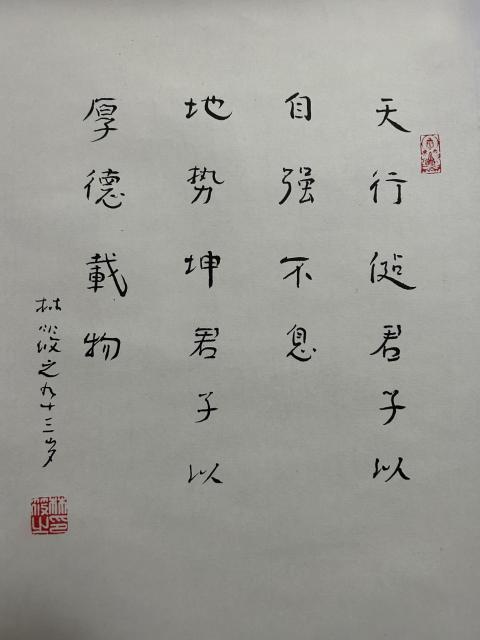 天行健君子以
自强不息
地势坤君子以
厚德載物
林筱之九十三岁
林筱之印